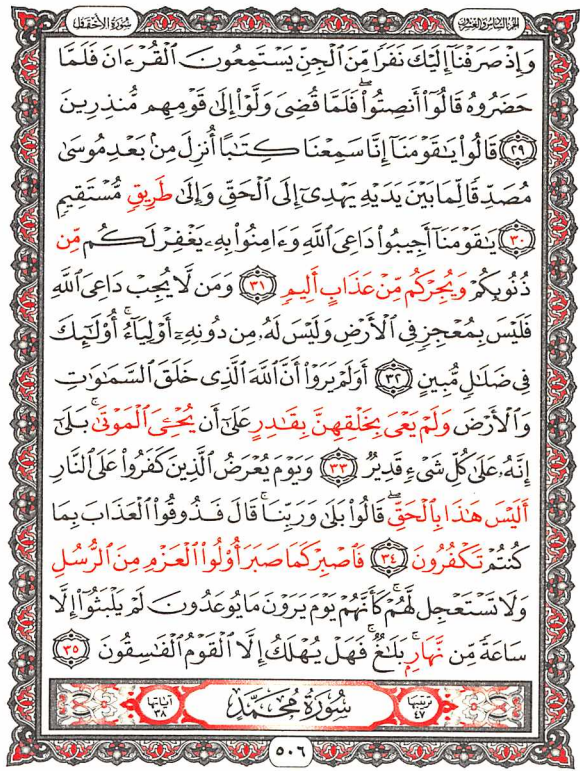 الجزء السادس والعشرون
سورة الأحقاف
وَإِذْ صَرَفْنَآ إِلَيْكَ نَفَرًا مِّنَ ٱلْجِنِّ يَسْتَمِعُونَ ٱلْقُرْءَانَ فَلَمَّا
حَضَرُوهُ قَالُوٓا۟ أَنصِتُوا۟ۖ فَلَمَّا قُضِىَ وَلَّوْا۟ إِلَىٰ قَوْمِهِم مُّنذِرِينَ
٢٩ قَالُوا۟ يَٰقَوْمَنَآ إِنَّا سَمِعْنَا كِتَٰبًا أُنزِلَ مِنۢ بَعْدِ مُوسَىٰ
مُصَدِّقًا لِّمَا بَيْنَ يَدَيْهِ يَهْدِىٓ إِلَى ٱلْحَقِّ وَإِلَىٰ طَرِيقٍ مُّسْتَقِيمٍ
٣٠ يَٰقَوْمَنَآ أَجِيبُوا۟ دَاعِىَ ٱللَّهِ وَءَامِنُوا۟ بِهِۦ يَغْفِرْ لَكُم مِّن
ذُنُوبِكُمْ وَيُجِرْكُم مِّنْ عَذَابٍ أَلِيمٍ ٣١ وَمَن لَّا يُجِبْ دَاعِىَ ٱللَّهِ
فَلَيْسَ بِمُعْجِزٍ فِى ٱلْأَرْضِ وَلَيْسَ لَهُۥ مِن دُونِهِۦٓ أَوْلِيَآءُۚ أُو۟لَٰٓئِكَ
فِى ضَلَٰلٍ مُّبِينٍ ٣٢ أَوَلَمْ يَرَوْا۟ أَنَّ ٱللَّهَ ٱلَّذِى خَلَقَ ٱلسَّمَٰوَٰتِ
وَٱلْأَرْضَ وَلَمْ يَعْىَ بِخَلْقِهِنَّ بِقَٰدِرٍ عَلَىٰٓ أَن يُحْۦِىَ ٱلْمَوْتَىٰۚ بَلَىٰٓ
إِنَّهُۥ عَلَىٰ كُلِّ شَىْءٍ قَدِيرٌ ٣٣ وَيَوْمَ يُعْرَضُ ٱلَّذِينَ كَفَرُوا۟ عَلَى ٱلنَّارِ
أَلَيْسَ هَٰذَا بِٱلْحَقِّۖ قَالُوا۟ بَلَىٰ وَرَبِّنَاۚ قَالَ فَذُوقُوا۟ ٱلْعَذَابَ بِمَا
كُنتُمْ تَكْفُرُونَ ٣٤ فَٱصْبِرْ كَمَا صَبَرَ أُو۟لُوا۟ ٱلْعَزْمِ مِنَ ٱلرُّسُلِ
وَلَا تَسْتَعْجِل لَّهُمْۚ كَأَنَّهُمْ يَوْمَ يَرَوْنَ مَا يُوعَدُونَ لَمْ يَلْبَثُوٓا۟ إِلَّا
سَاعَةً مِّن نَّهَارٍۭۚ بَلَٰغٌۚ فَهَلْ يُهْلَكُ إِلَّا ٱلْقَوْمُ ٱلْفَٰسِقُونَ ٣٥
ترتيبها ٤٧ سُورَةُ مُحَمَّدٍ آياتها ٣٨
٥٠٦